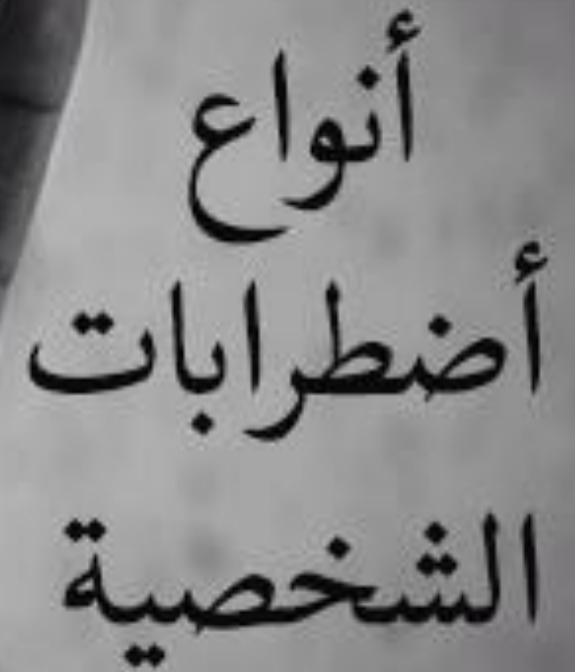 أنواع
أضطرابات
الشخصية